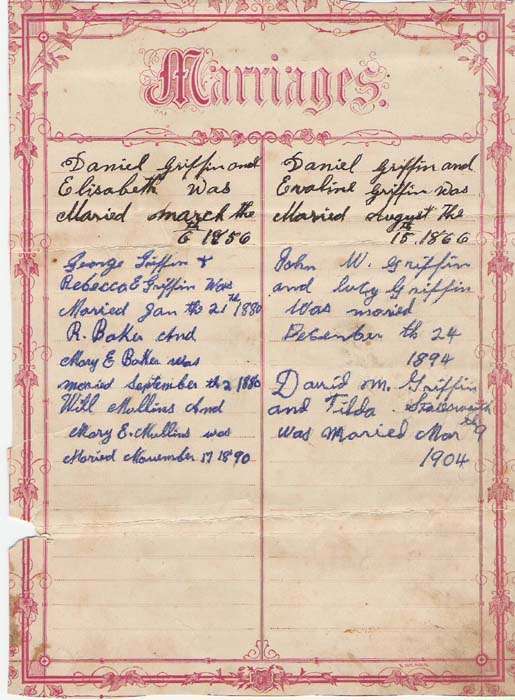 Marriages.
Daniel Griffin and
Elisabeth was
Maried march the
6th 1856
George Griffin &
Rebecca E Griffin Was
Maried Jan th 21th 1880
R. Baker And
Mary E Baker was
maried September th 2 1880
Will Mullins And
Mary E. Mullins was
Maried November 17 1890
Daniel Griffin and
Evaline Griffin was
Maried August The
15th. 1866
John W. Griffin
and Lucy Griffin
Was maried
December th 24
1894
David M. Griffin
and Tilda
was Maried Mar the 9
1904